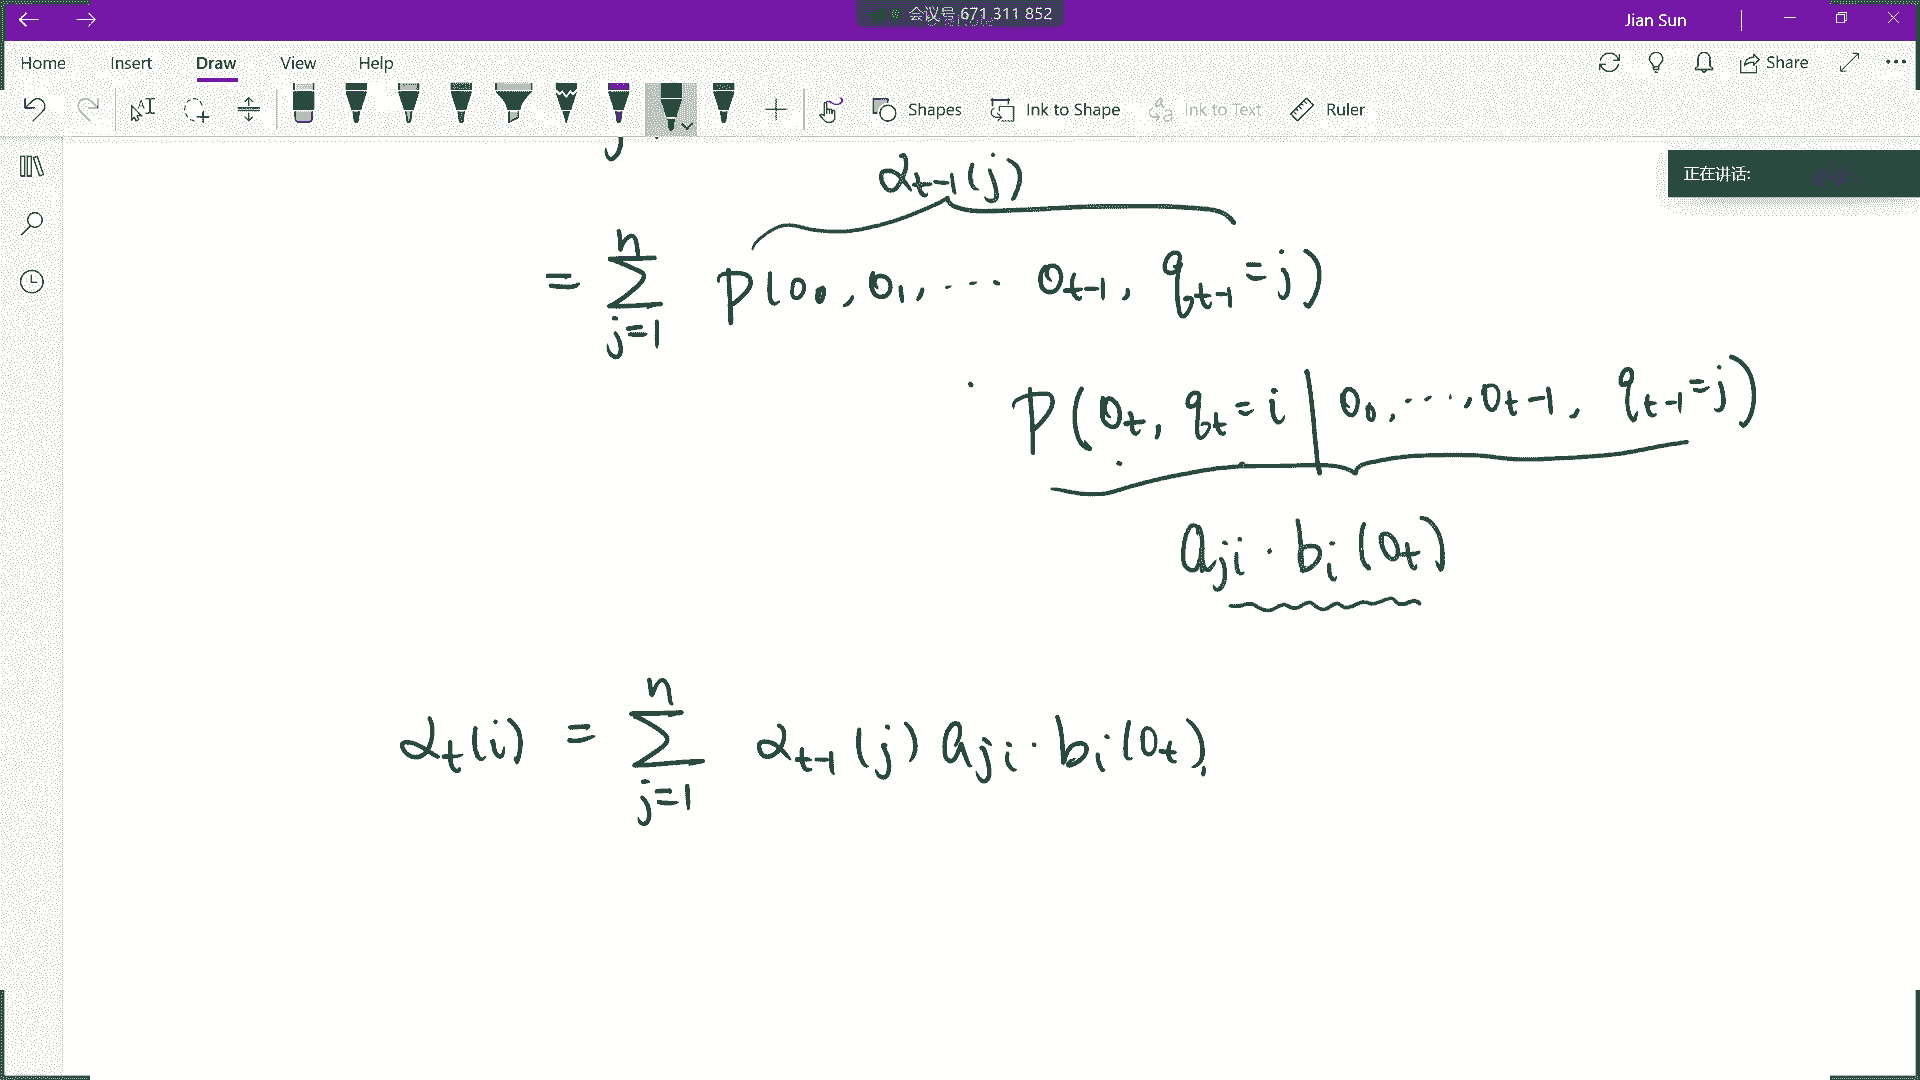 会议号 671 311 852
Jian Sun
Home Insert Draw View Help
Share
Shapes Ink to Shape Ink to Text Ruler
正在讲话:
j
α_{t-1}(j)
= \sum_{j=1}^{n} P(o_0, o_1, ... o_{t-1}, q_{t-1}=j)
· P(o_t, q_t=i | o_0, ..., o_{t-1}, q_{t-1}=j)
a_{ji} · b_i(o_t)
α_t(i) = \sum_{j=1}^{n} α_{t-1}(j) a_{ji} · b_i(o_t).